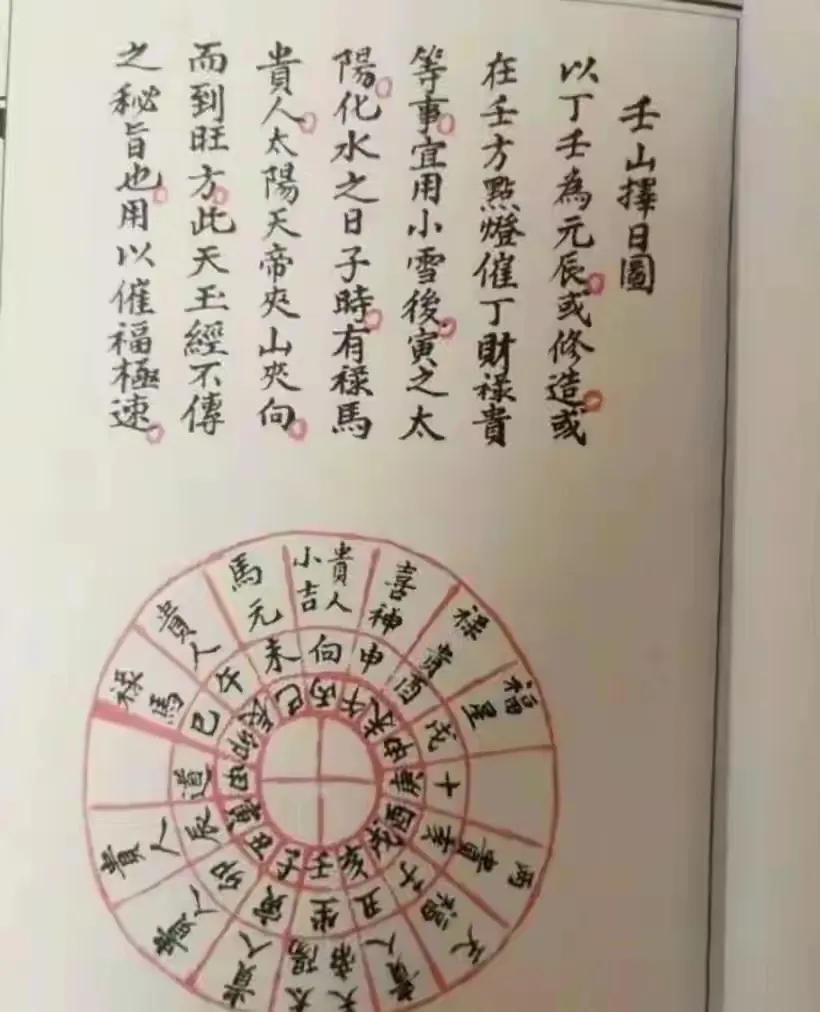 壬山擇日圖
以丁壬為元辰或修造或
在壬方點燈催丁財祿貴
等事宜用小雪後寅之太
陽化水之日子時有祿馬
貴人太陽天帝夾山夾向
而到旺方此天玉經不傳
之秘旨也用以催福極速
貴人
小吉
喜神
祿貴
福星
馬元
貴人
祿馬
貴人
貴人
貴人
太陽
天帝
貴人
向
申
酉
戌
十
亥
子
丑
坐
寅
卯
辰
道
巳
午
未
丙
午
庚
酉
戌
亥
壬
子
巳